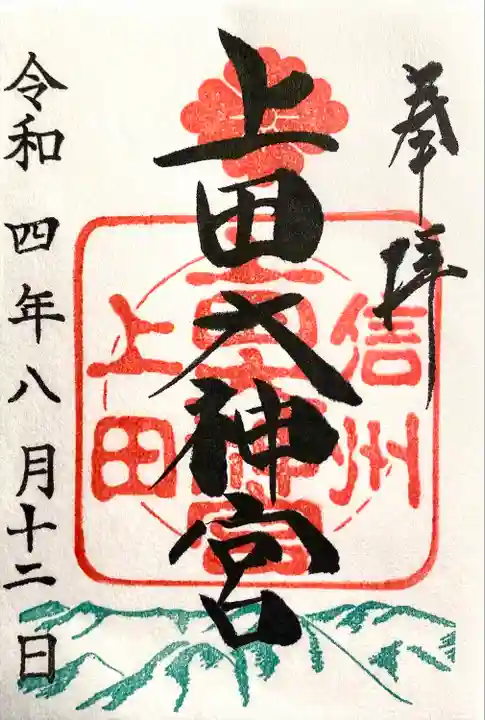 奉拝
上田大神宮
信州
上田
上田大神宮
令和四年八月十二日